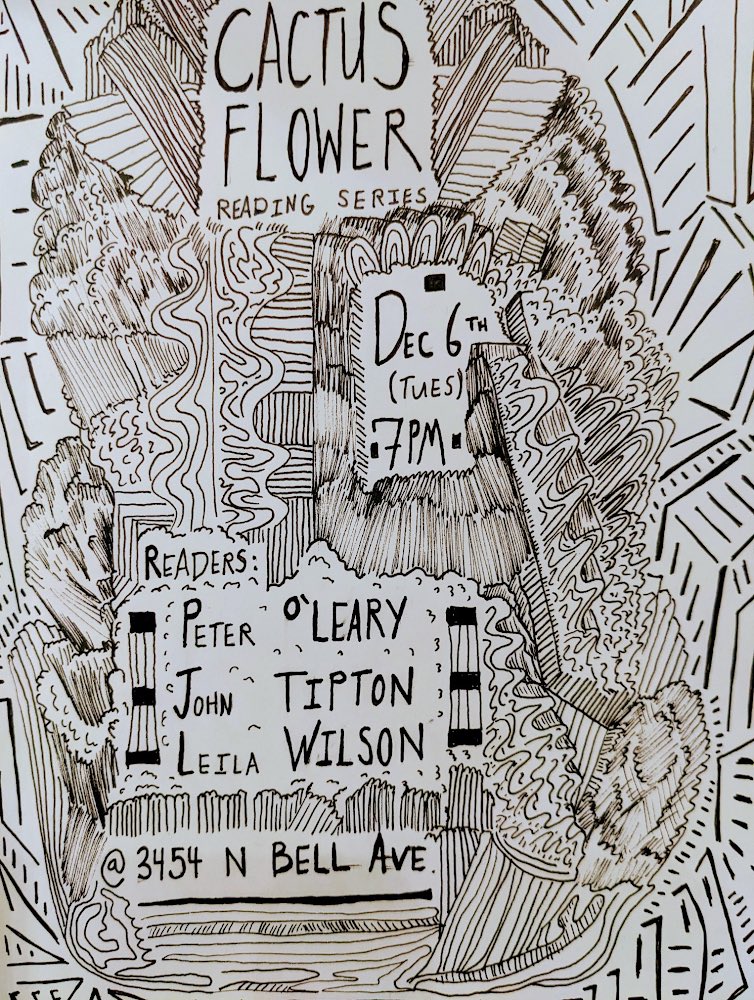 CACTUS
FLOWER
READING SERIES
DEC 6TH
(TUES)
7PM
READERS:
PETER O'LEARY
JOHN TIPTON
LEILA WILSON
@ 3454 N BELL AVE.